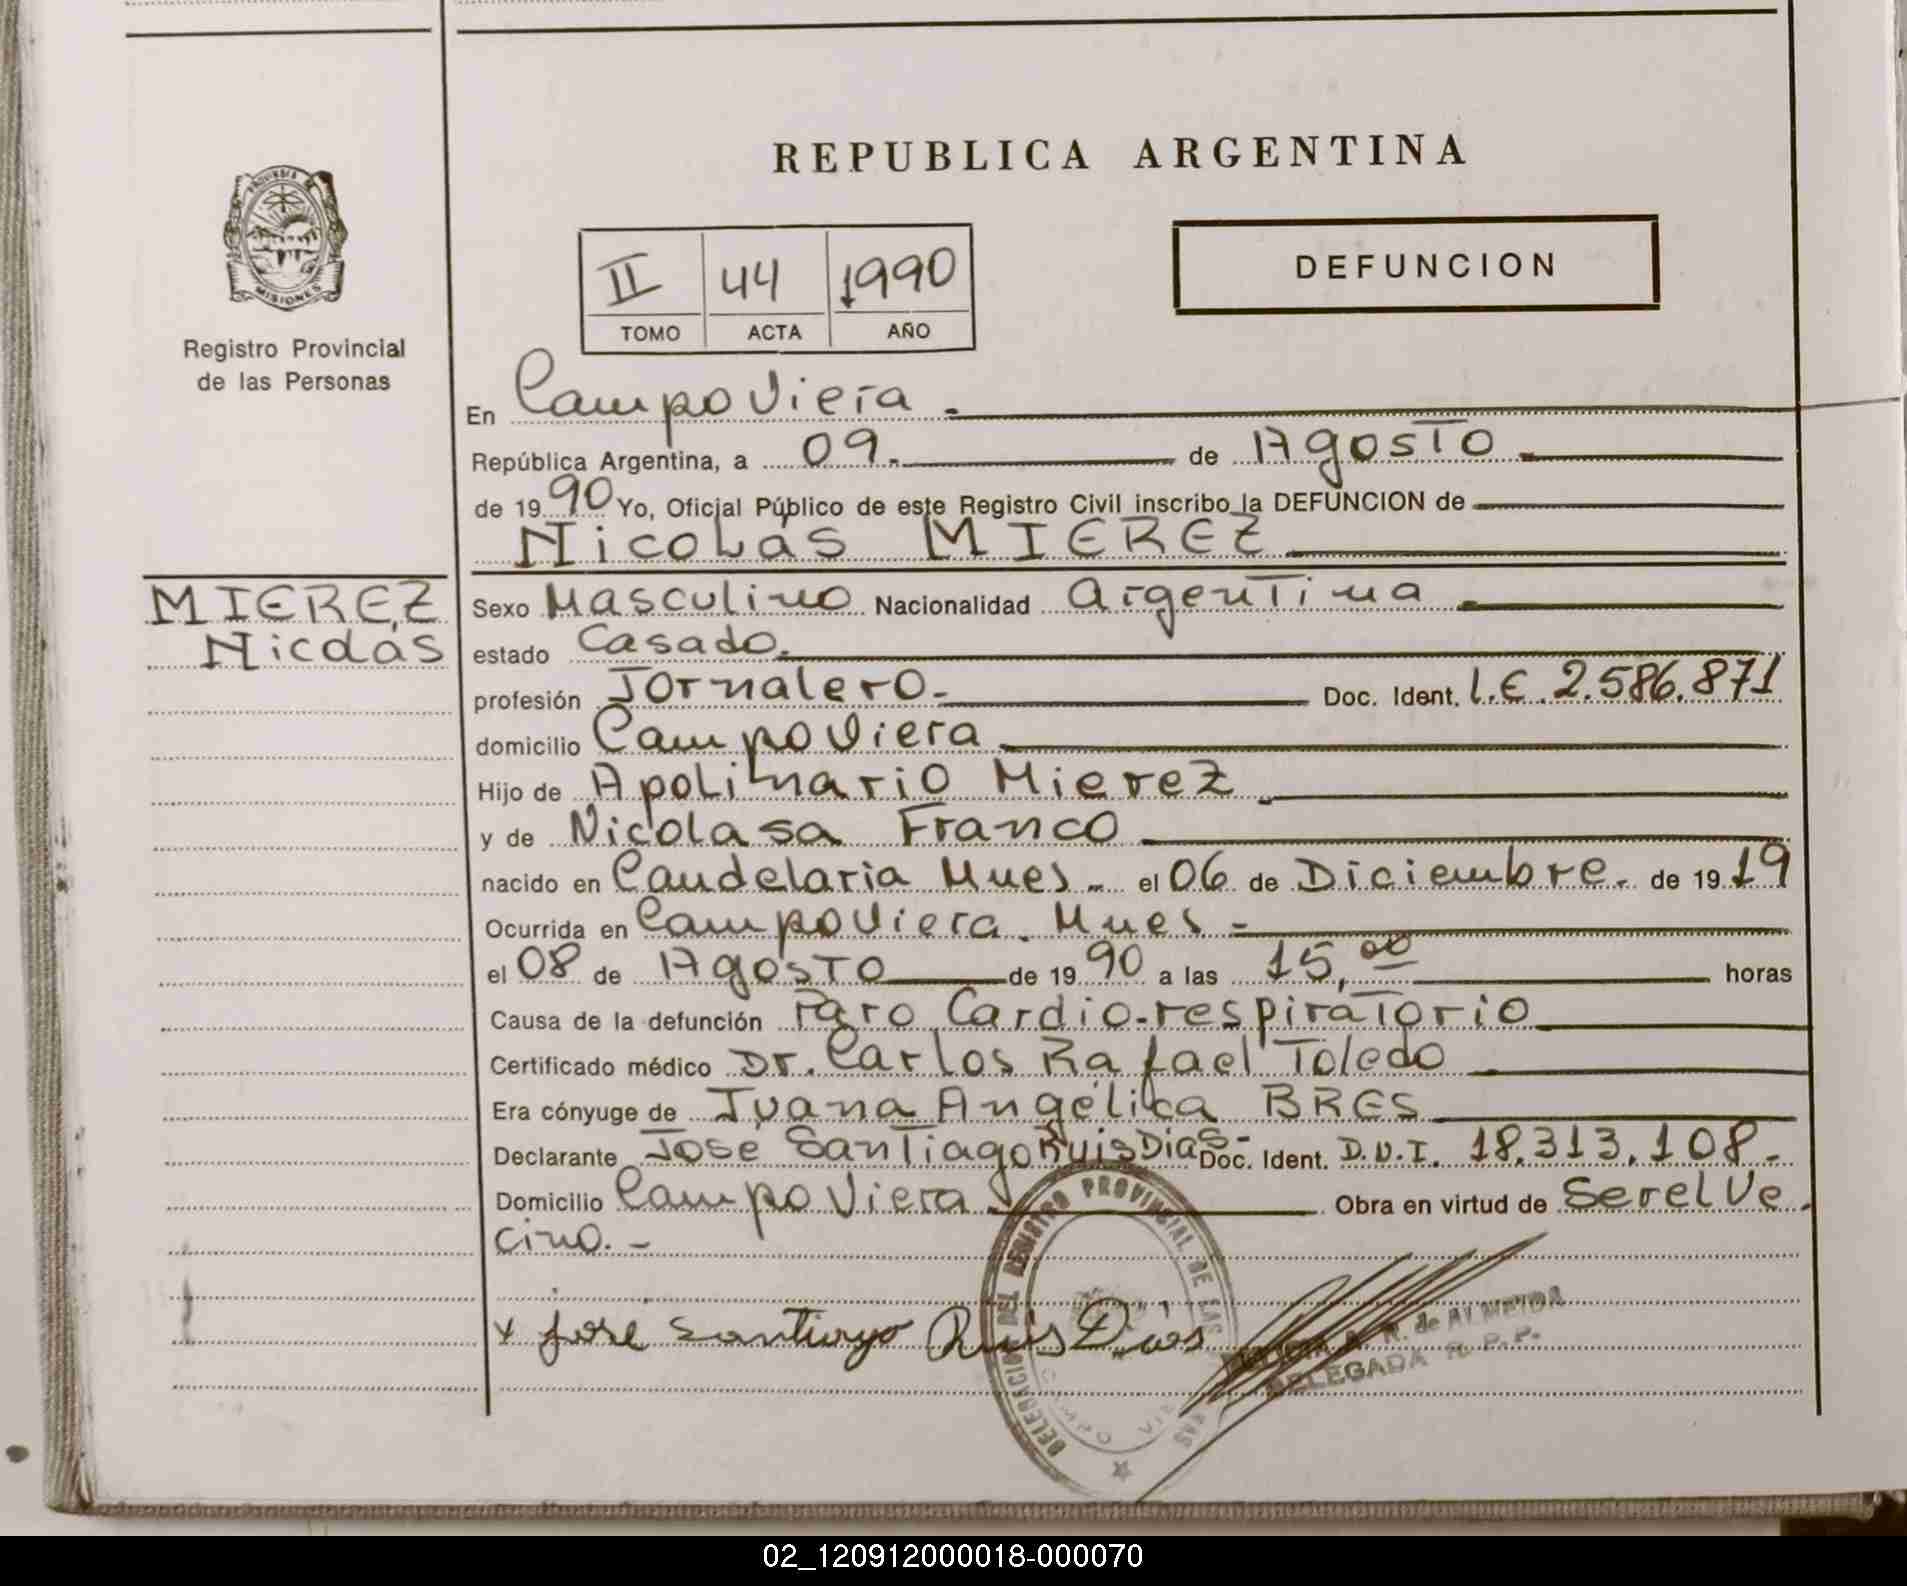 REPUBLICA ARGENTINA
PROVINCIA DE
MISIONES
Registro Provincial
de las Personas
II 44 1990
TOMO ACTA AÑO
DEFUNCION
En Campo Viera.
República Argentina, a 09. de Agosto
de 1990 Yo, Oficial Público de este Registro Civil inscribo la DEFUNCION de
Nicolás MIEREZ
MIEREZ
Nicolás
Sexo Masculino Nacionalidad Argentina
estado Casado.
profesión Jornalero. Doc. Ident. L.E. 2.586.871
domicilio Campo Viera
Hijo de Apolinario Mierez
y de Nicolasa Franco
nacido en Candelaria Mnes. el 06 de Diciembre. de 1919
Ocurrida en Campo Viera. Mnes
el 08 de Agosto de 1990 a las 15,00 horas
Causa de la defunción Paro Cardio-respiratorio
Certificado médico Dr. Carlos Rafael Toledo
Era cónyuge de Juana Angélica BRES
Declarante Jose Santiago Ruis Dias- Doc. Ident. D.N.I. 18.313.108.
Domicilio Campo Viera Obra en virtud de Ser el Ve
cino.-
x José Santiago Ruis Días
DELEGACION DEL REGISTRO PROVINCIAL DE LAS
CAMPO VIE
A. R. de ALMEIDA
DELEGADA R. P. P.
02_120912000018-000070